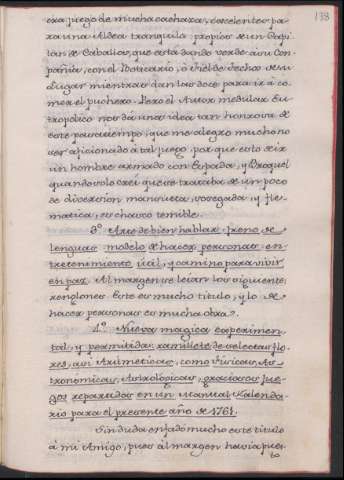 138
era juego de mucha cachaza, excelente pa-
ra una Aldea tranquila propios de un Capi
tan de Caballos, que està dando verde à su Com-
pañia, con el Boticario, ò Fiel de fechos de su
Lugar mientras dan las doce para ir à co-
mer el puchero. Pero el Autor medular Eu-
tropolico nos dà una idea tan horrorosa de
este pasatiempo, que me alegro mucho no
ser aficionado à tal juego, por que esto de ir
un hombre armado con Espada, y Broquel
quando yo creì que se trataba de un poco
de diversion mansueta, sosegada, y fle-
matica, es chasco temible.
3º Arte de bien hablar, freno de
lenguas, modelo de hacer personas, en-
tretenimiento util, y camino para vivir
en paz. Al margen se leìan los siguientes
renglones. Este es mucho titulo, y lo de
hacer personas es mucha obra.
4º Nueva magica experimen-
tal, y permitida: ramillete de selectas flo-
res, asi Aritmeticas, como Fisicas, As-
tronomicas, Astrologicas, graciosos jue-
gos repartidos en un Manual Kalenda-
rio para el presente año de 1761.
Sin duda enfadò mucho este titulo
à mi Amigo, pues al margen havìa pues-
to